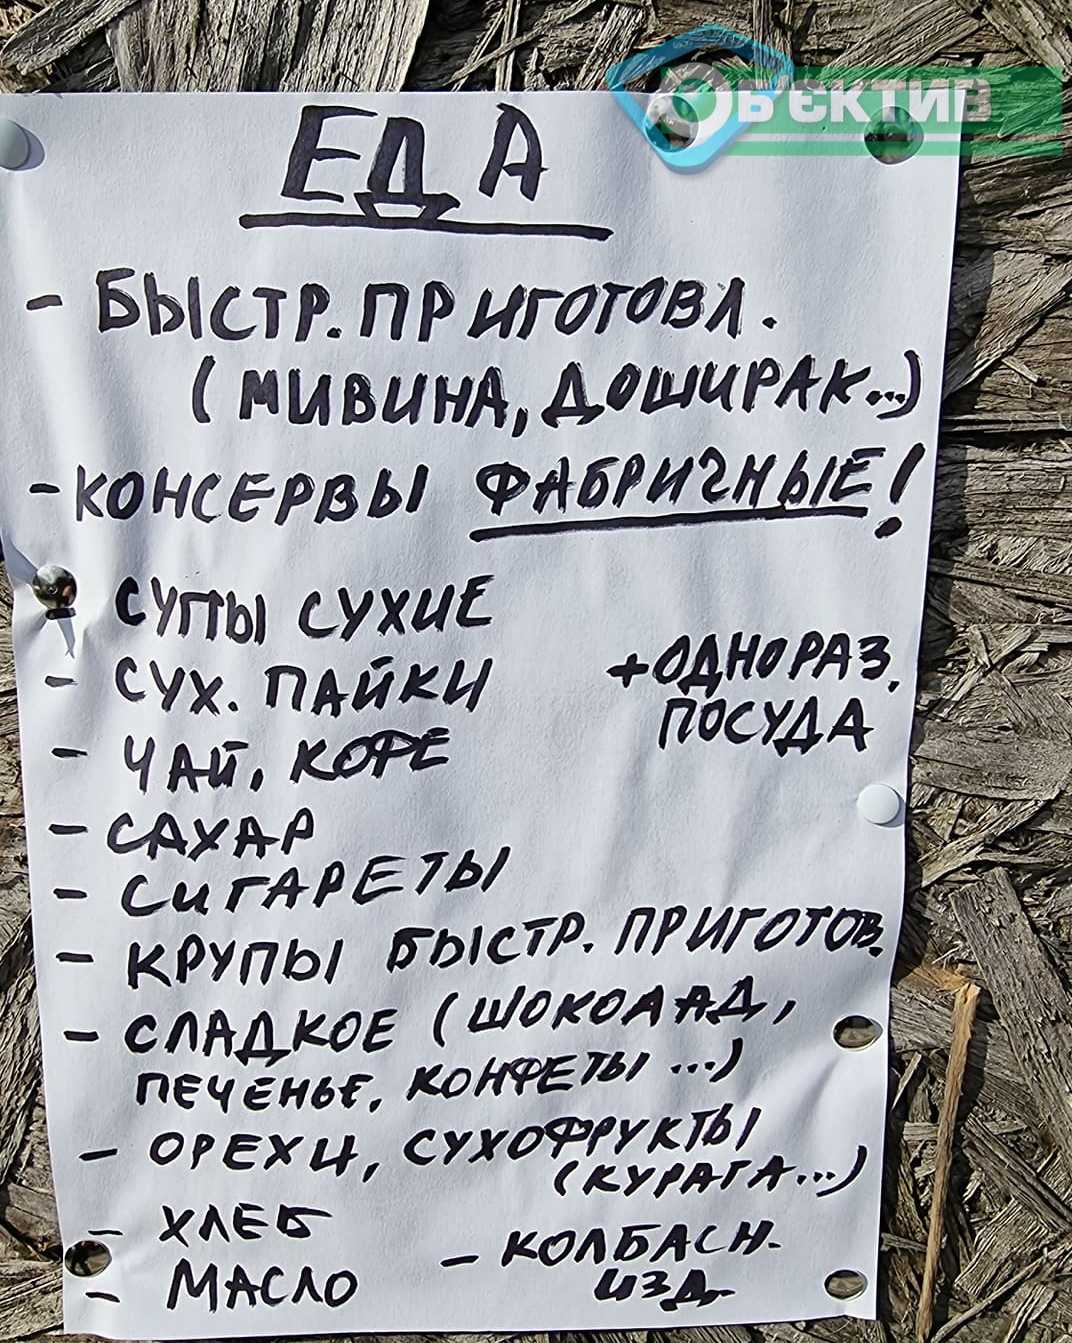 ОБ'ЄКТИВ
ЕДА
- БЫСТР. ПРИГОТОВЛ.
(МИВИНА, ДОШИРАК...)
- КОНСЕРВЫ ФАБРИЧНЫЕ!
- СУПЫ СУХИЕ
- СУХ. ПАЙКИ
+ ОДНОРАЗ.
ПОСУДА
- ЧАЙ, КОФЕ
- САХАР
- СИГАРЕТЫ
- КРУПЫ БЫСТР. ПРИГОТОВ.
- СЛАДКОЕ (ШОКОЛАД,
ПЕЧЕНЬЕ, КОНФЕТЫ ...)
- ОРЕХИ, СУХОФРУКТЫ
(КУРАГА...)
- ХЛЕБ
- МАСЛО
- КОЛБАСН.
ИЗД.